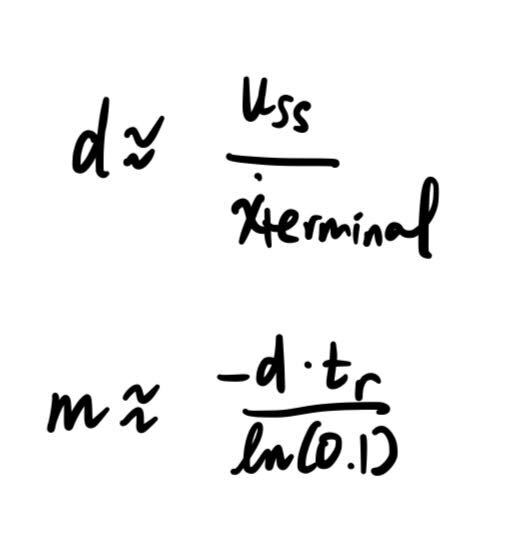 d ≈ u_ss / ẋ_terminal
m ≈ -d · t_r / ln(0.1)